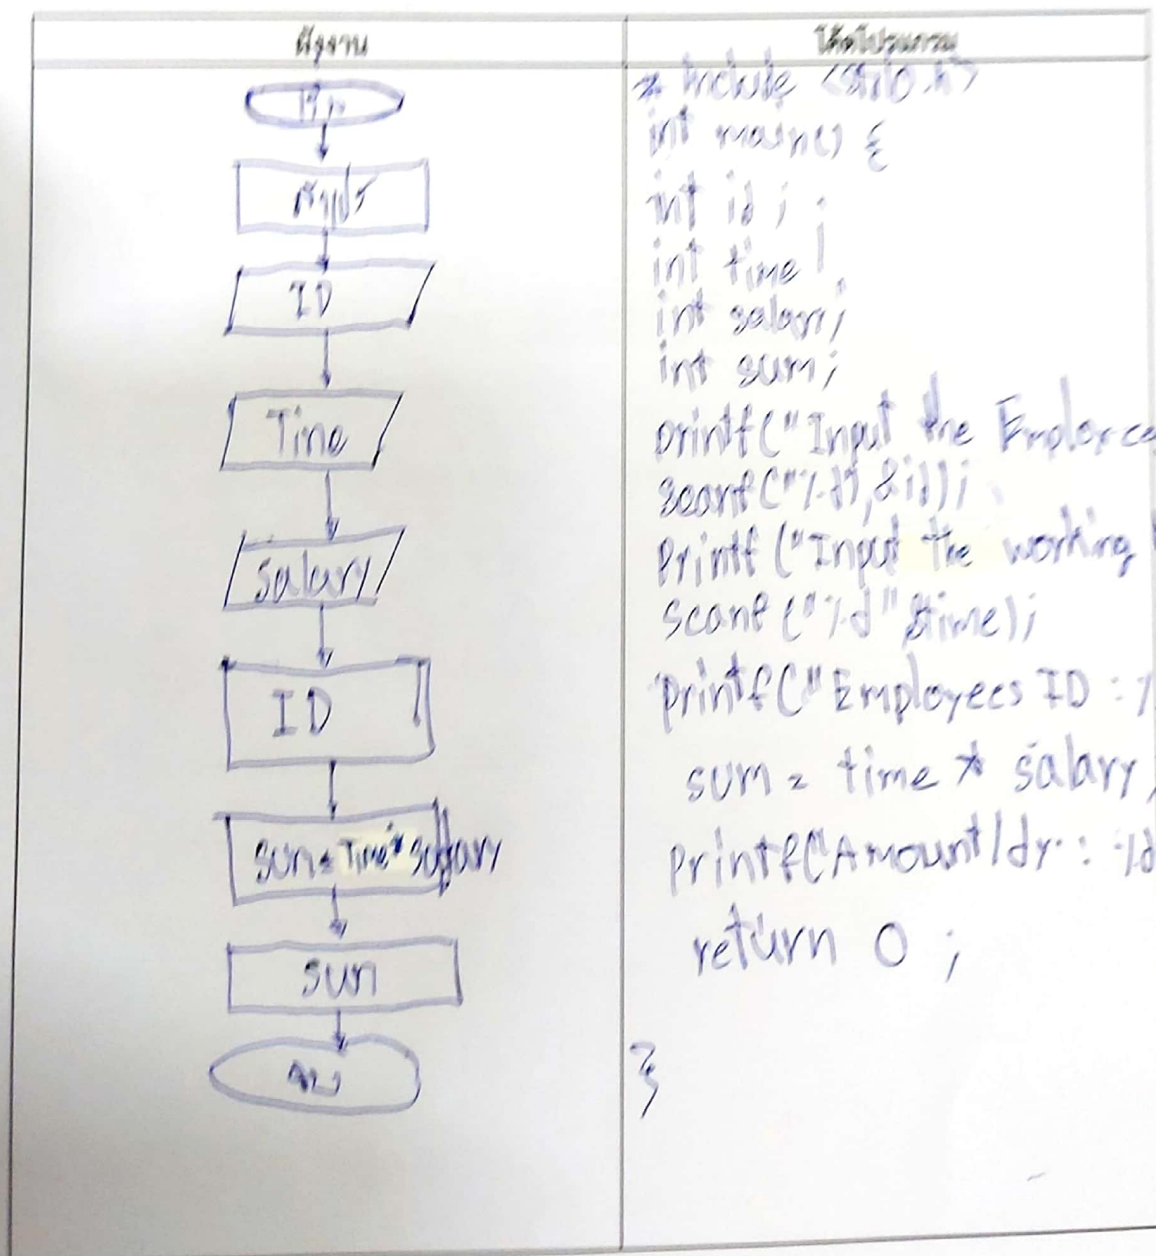 ผังงาน
โค้ดโปรแกรม
เริ่ม
ตัวแปร
ID
Time
Salary
ID
sum = Time * salary
sum
จบ
# include <stdio.h>
int main() {
int id ;
int time ;
int salary;
int sum;
printf("Input the Employees
scanf("%d",&id);
Printf ("Input the working
scanf ("%d" &time);
Printf("Employees ID : %
sum = time * salary;
Printf("Amount/dr : %d
return 0 ;
}